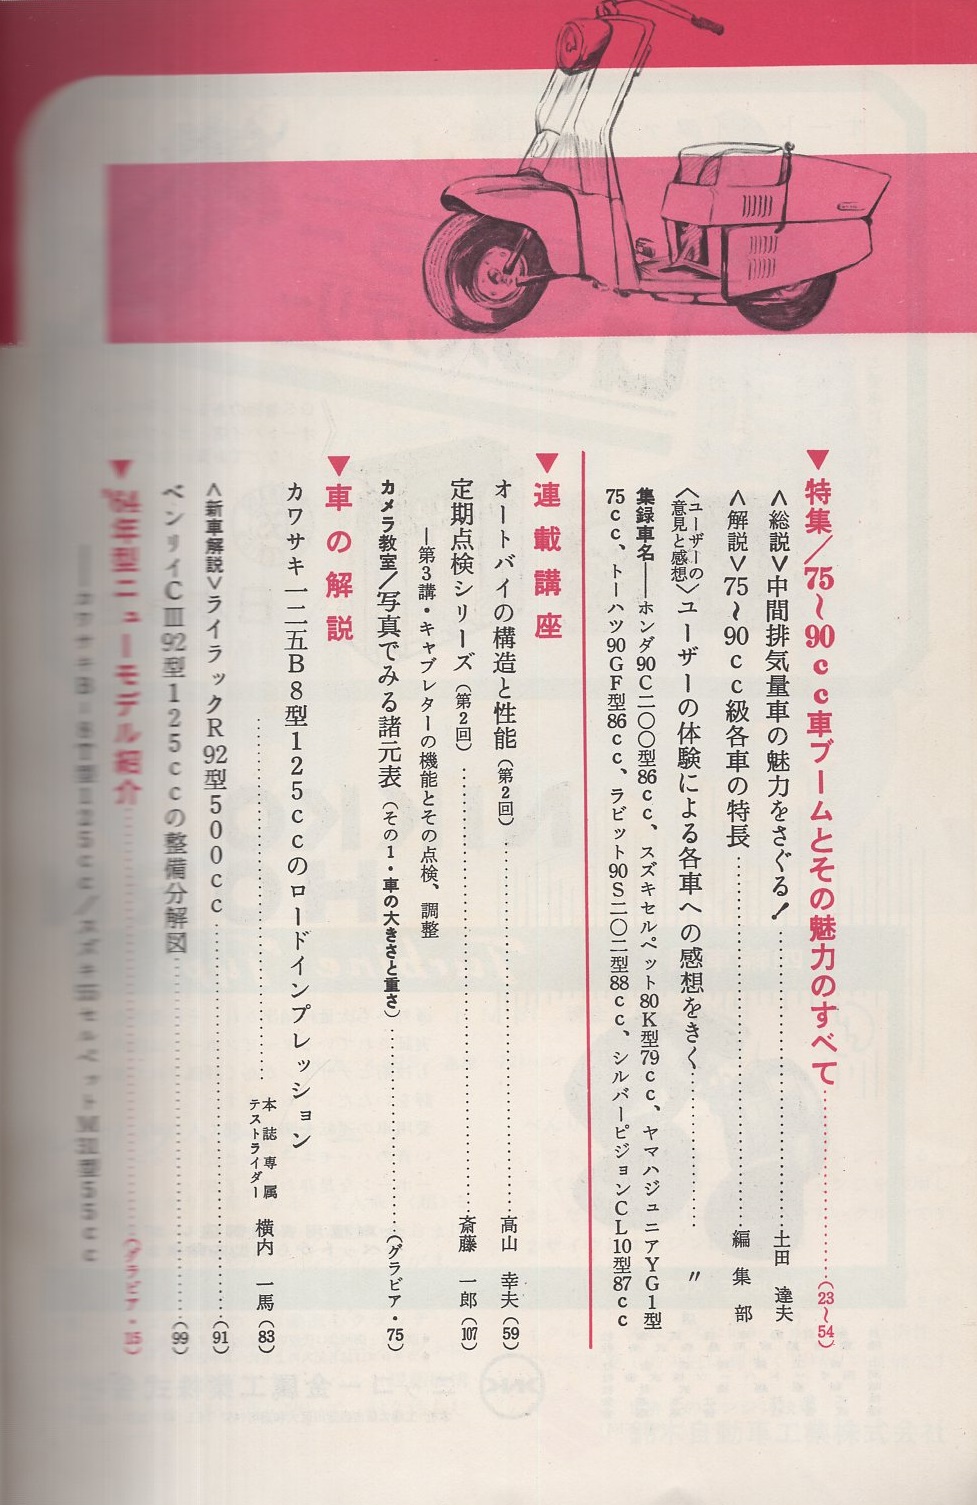 ▼特集/75〜90cc車ブームとその魅力のすべて……(23〜54)
<総説>中間排気量車の魅力をさぐる!……土田 達夫
<解説>75〜90cc級各車の特長……編集部
〈ユーザーの意見と感想〉ユーザーの体験による各車への感想をきく……〃
集録車名——ホンダ90C二〇〇型86cc、スズキセルペット80K型79cc、ヤマハジュニアYG1型
75cc、トーハツ90GF型86cc、ラビット90S二〇二型88cc、シルバーピジョンCL10型87cc
▼連載講座
オートバイの構造と性能(第2回)……高山 幸夫(59)
定期点検シリーズ(第2回)……斎藤 一郎(107)
—第3講・キャブレターの機能とその点検、調整
カメラ教室/写真でみる諸元表(その1・車の大きさと重さ)……(グラビア・75)
▼車の解説
カワサキ一二五B8型125ccのロードインプレッション
……本誌専属テストライダー 横内 一馬(83)
<新車解説>ライラックR92型500cc……(91)
ベンリイCⅢ92型125ccの整備分解図……(99)
▼'64年型ニューモデル紹介……(グラビア・15)